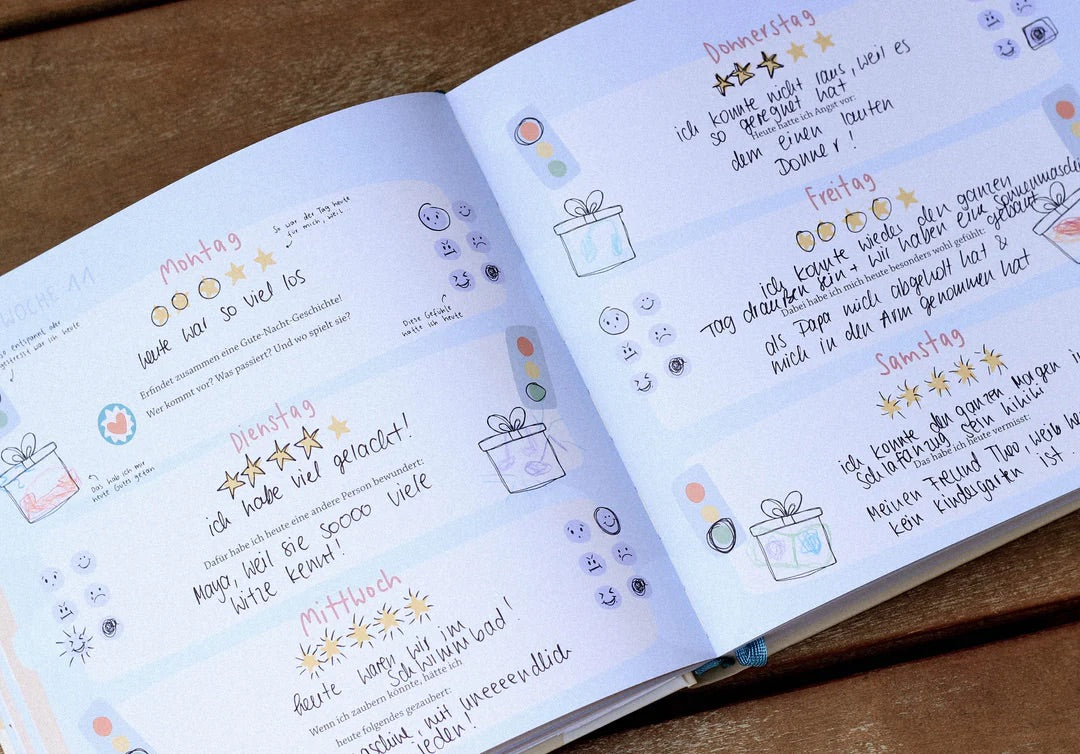 WOCHE 11
Montag
So war der Tag heute
für mich, weil...
heute war so viel los
Erfindet zusammen eine Gute-Nacht-Geschichte!
Wer kommt vor? Was passiert? Und wo spielt sie?
so entspannt oder
gestresst war ich heute
Diese Gefühle
hatte ich heute
Das hab ich mir
heute Gutes getan
Dienstag
ich habe viel gelacht!
Dafür habe ich heute eine andere Person bewundert:
Maya, weil sie soooo viele
Witze kennt!
Mittwoch
heute waren wir im
Schwimmbad!
Wenn ich zaubern könnte, hätte ich
heute folgendes gezaubert:
mit uneeeendlich
jeden!
Donnerstag
ich konnte nicht raus, weil es
so geregnet hat
Heute hatte ich Angst vor:
dem einen lauten
Donner!
Freitag
ich konnte wieder den ganzen
Tag draußen sein + wir haben eine
gebaut
Dabei habe ich mich heute besonders wohl gefühlt:
als Papa mich abgeholt hat &
mich in den Arm genommen hat
Samstag
ich konnte den ganzen Morgen
Schlafanzug sein hihihi
Das habe ich heute vermisst:
Meinen Freund Theo, weil
kein Kindergarten ist